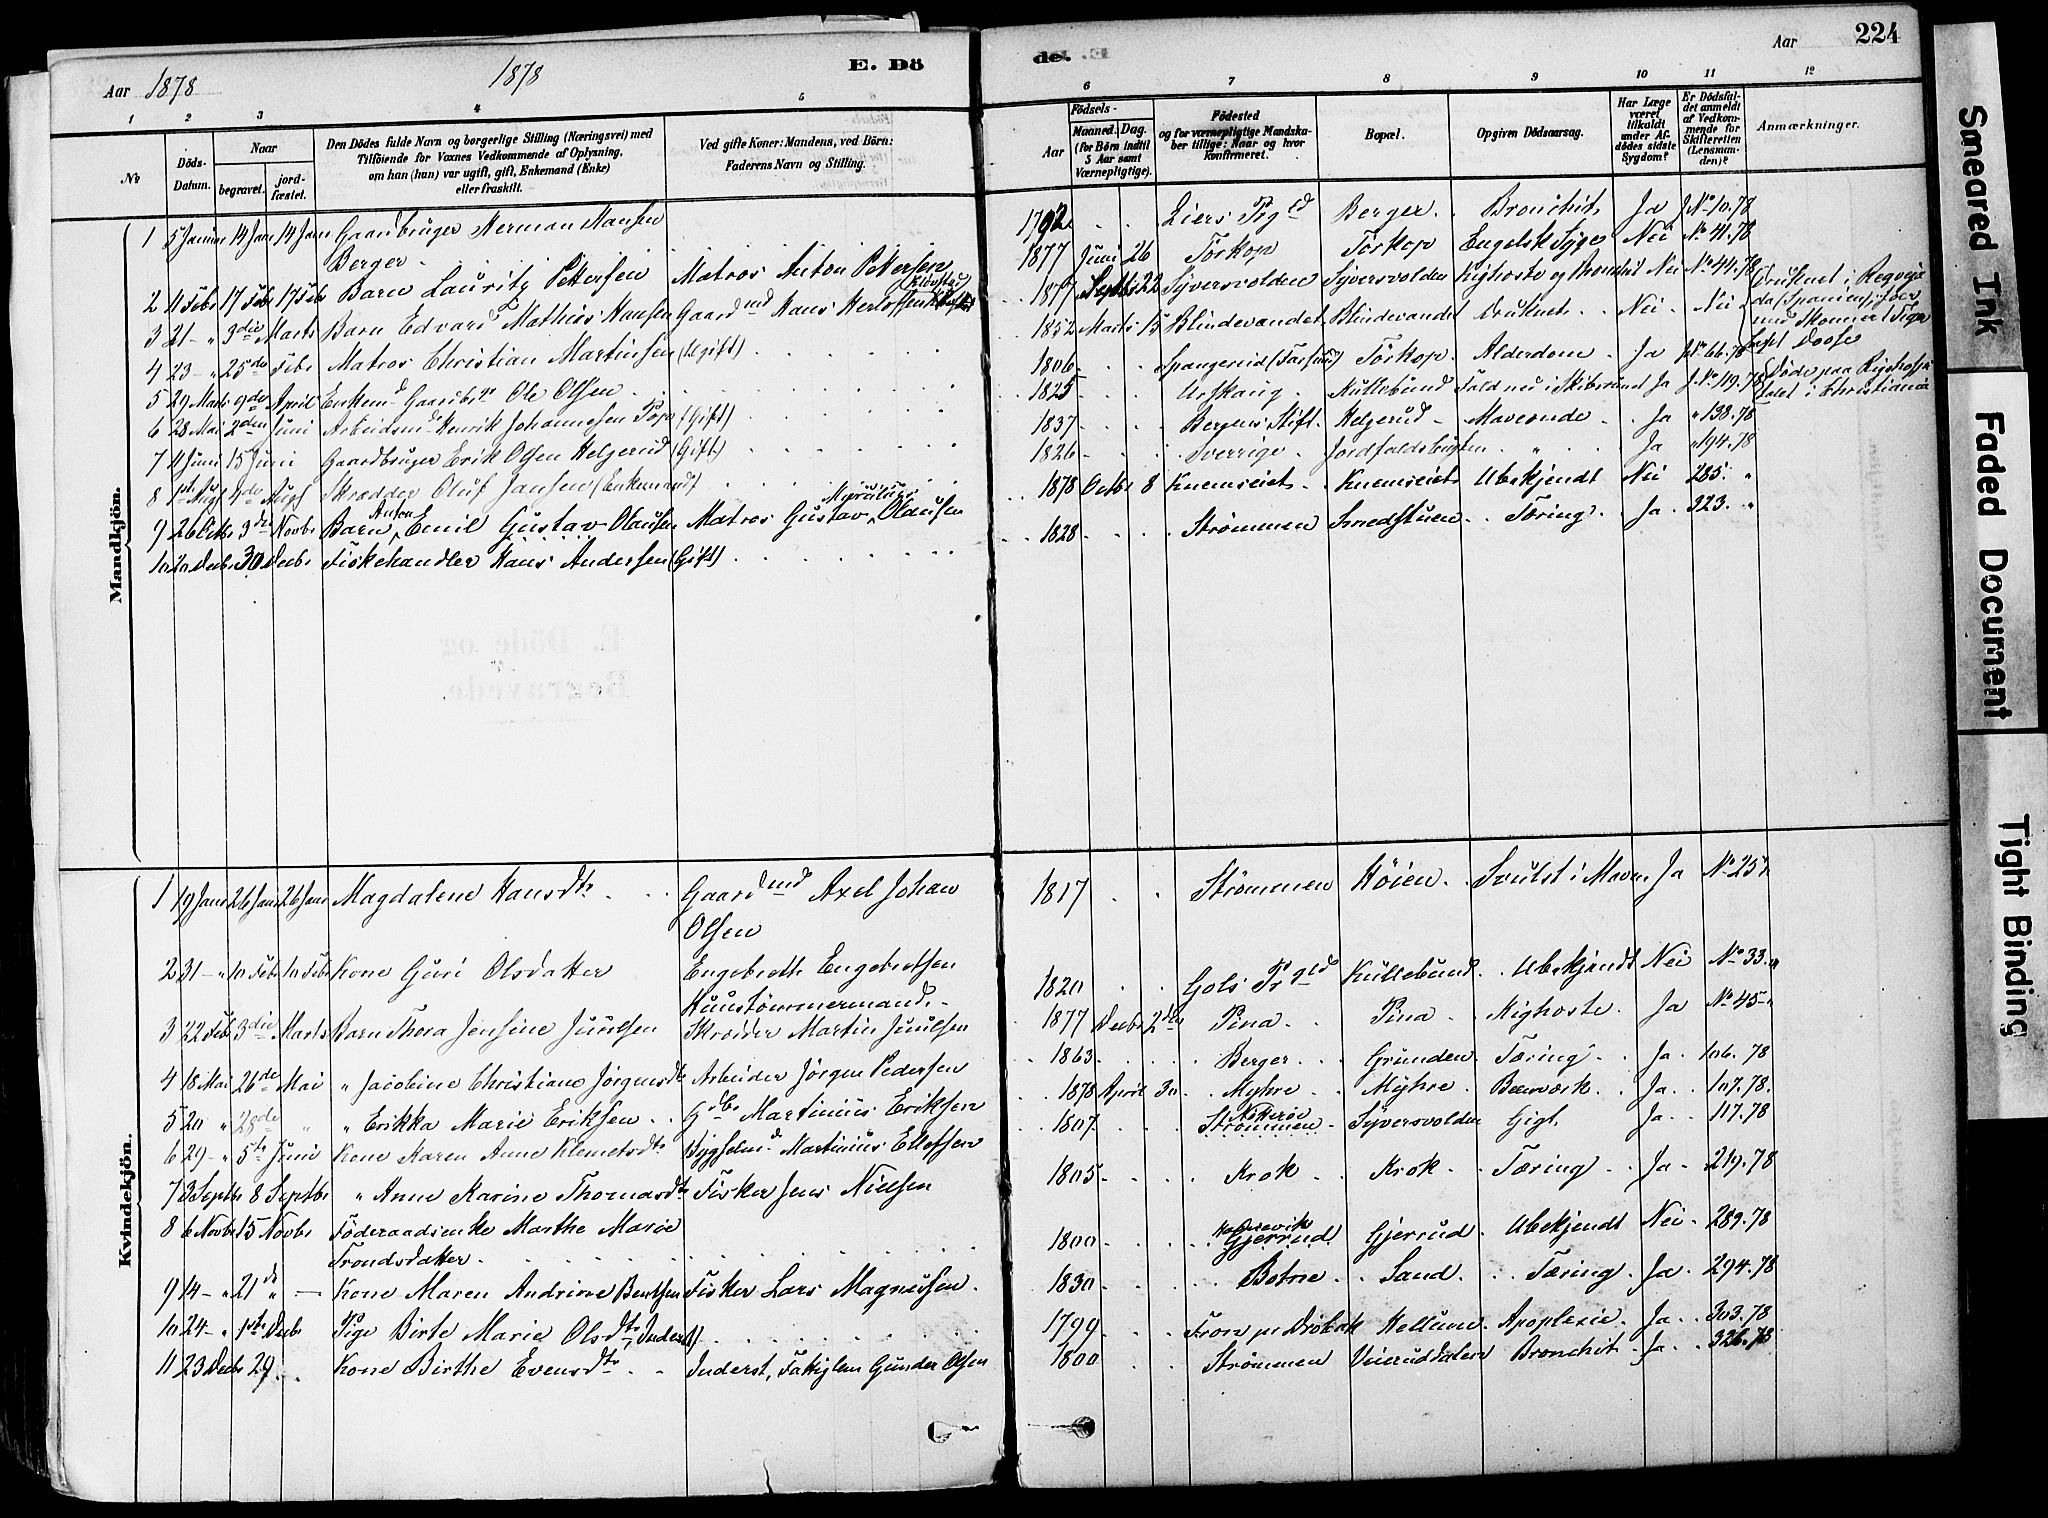 Aar 1878
1878
E. Dö
de.
Aar
224
1
2
3
4
5
6
7
8
9
10
11
12
No
Döds-Datum.
Naar
begravet.
jord-fæstet.
Den Dödes fulde Navn og borgerlige Stilling (Næringsvei) med
Tilföiende for Voxnes Vedkommende af Oplysning,
om han (hun) var ugift, gift, Enkemand (Enke)
eller fraskilt.
Ved gifte Koner: Mandens, ved Börn:
Faderens Navn og Stilling.
Födsels-
Aar
Maaned.
Dag.
(for Börn indtil
5 Aar samt
Værnepligtige).
Födested
og for værnepligtige Mandska-
ber tillige: Naar og hvor
konfirmeret.
Bopæl.
Opgiven Dödsaarsag.
Har Læge
været
tilkaldt
under Af-
dödes sidste
Sygdom?
Er Dödsfal-
det anmeldt
af Vedkom-
mende for
Skifteretten
(Lensman-
den)?
Anmærkninger.
Mandkjön.
1 5 Januar 14 Jan 14 Jan Gaardbruger Herman Hansen 1792 Liers Pgld Berger. Bronchit Ja No 10.78
Berger
2 11 Febr 17 Febr 17 Febr Barn Lauritz Pettersen Matros Anton Pettersen 1877 Juni 26 Torkop Torkop Engelsk Syge Nei No 41.78
3 21 - " 3die Marts Barn Edvard Mathias Hansen Gaardmd Hans Herlofsen 1877 Septbr 22 Syversvolden Syversvolden Kighoste og Bronchit Nei No 44.78
4 23 - " 25de Febr Matros Christian Martinsen (Ugift) 1852 Marts 15 Blindevandet Blindevandet Druknet Nei Nei Druknet i
5 29 Marts 9de April Enkemd Gaardbr Ole Olsen 1806 Torkop Alderdom Ja No 66.78
6 28 Mai 2den Juni Arbeidsmd Henrik Johannesen (Gift) 1825 Urskaug Kullebund Fald ned i Ja No 119.78 Døde paa Rigshospi-
talet i Christiania
7 11 Juni 15 Juni Gaardbruger Erik Olsen Helgerud (Gift) 1837 Bergens Stift Helgerud Maveonde Ja " 138.78
8 1ste Augs 4de Augs Skrædder Oluf Jansen (Enkemand) 1826 Sverrige Jordfaldsbugten " Ja " 194.78
9 26 Octbr 3die Novbr Barn Anton Emil Gustav Olausen Matros Gustav Olausen 1878 Octbr 8 Knemseiet Knemseiet Ubekjendt Nei 285. "
10 20 Decbr 30 Decbr Fiskehandler Hans Andersen (Gift) 1828 Strømmen Smedstuen Tæring Ja 323. "
Kvindekjön.
1 19 Janr 26 Janr 26 Janr Magdalene Hansdtr Gaardmd Axel Johan 1817 Strømmen Høien Svulst i Maven Ja No 25 "
Olsen
2 31 - " 10 Febr 10 Febr Kone Guri Olsdatter Engebreth Engebretsen 1820 Gols Prgld Kullebund Ubekjendt Nei No 33. "
Huustømmermand
3 22 Febr 3die Marts Barn Thora Jensine Juulsen Skræder Martin Juulsen 1877 Decbr 2den Pina Pina Kighoste Ja No 45 "
4 18 Mai 26de Mai " Jacobine Christiane Jørgensdtr Arbeider Jørgen Pedersen 1863 Berger Grunden Tæring Ja 106.78
5 20 " 28de " " Erikka Marie Eriksen Gdbr Martinius Eriksen 1878 April 30 Myhre Myhre Ja 107.78
6 29 - " 5te Juni Kone Karen Anne Klemetsdtr Bygselmd Martinius Ellefsen 1807 Strømmen Syversvolden Gigt Ja 117.78
7 3 Septbr 8 Septbr " Anne Karine Thomasdtr Fisker Jens Nielsen 1805 Krok Krok Tæring Ja 219.78
8 6 Novbr 15 Novbr Føderaadsenke Marthe Marie 1800 Gjerrud Gjerrud Ubekjendt Nei 289.78
Trondsdatter
9 14 - " 21de " Kone Maren Andrine Bentsen Fisker Lars Magnussen 1830 Botne Sand Tæring Ja 294.78
10 24 - " 1ste Decbr Pige Birte Marie Olsdtr, Inderst 1799 Drøbak Kellum Apoplexie Ja 303.78
11 23 Decbr 29 Kone Birthe Evensdtr Inderst, Fattiglem Gunder Olsen 1800 Strømmen Veieruddalen Bronchit Ja 326.78
Smeared Ink
Faded Document
Tight Binding